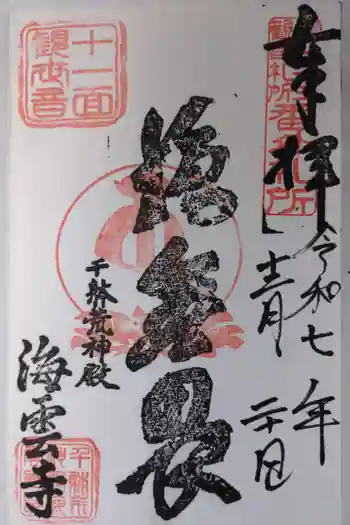 奉拝
令和七年
十二月二十日
施無畏
千躰荒神殿
海雲寺
十一面
観世音